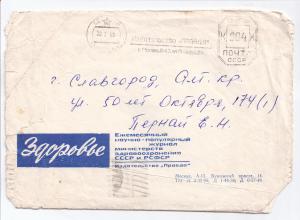 ИЗДАТЕЛЬСТВО "ПРАВДА"
004
ПОЧТА
СССР
г. Славгород, Алт. кр.
ул. 50 лет Октября, 174(1)
Пернай Е. Н.
Здоровье
Ежемесячный
научно-популярный
журнал
министерств
здравоохранения
СССР и РСФСР
Издательство „Правда"
Москва, А-15, Бумажный проезд, 14